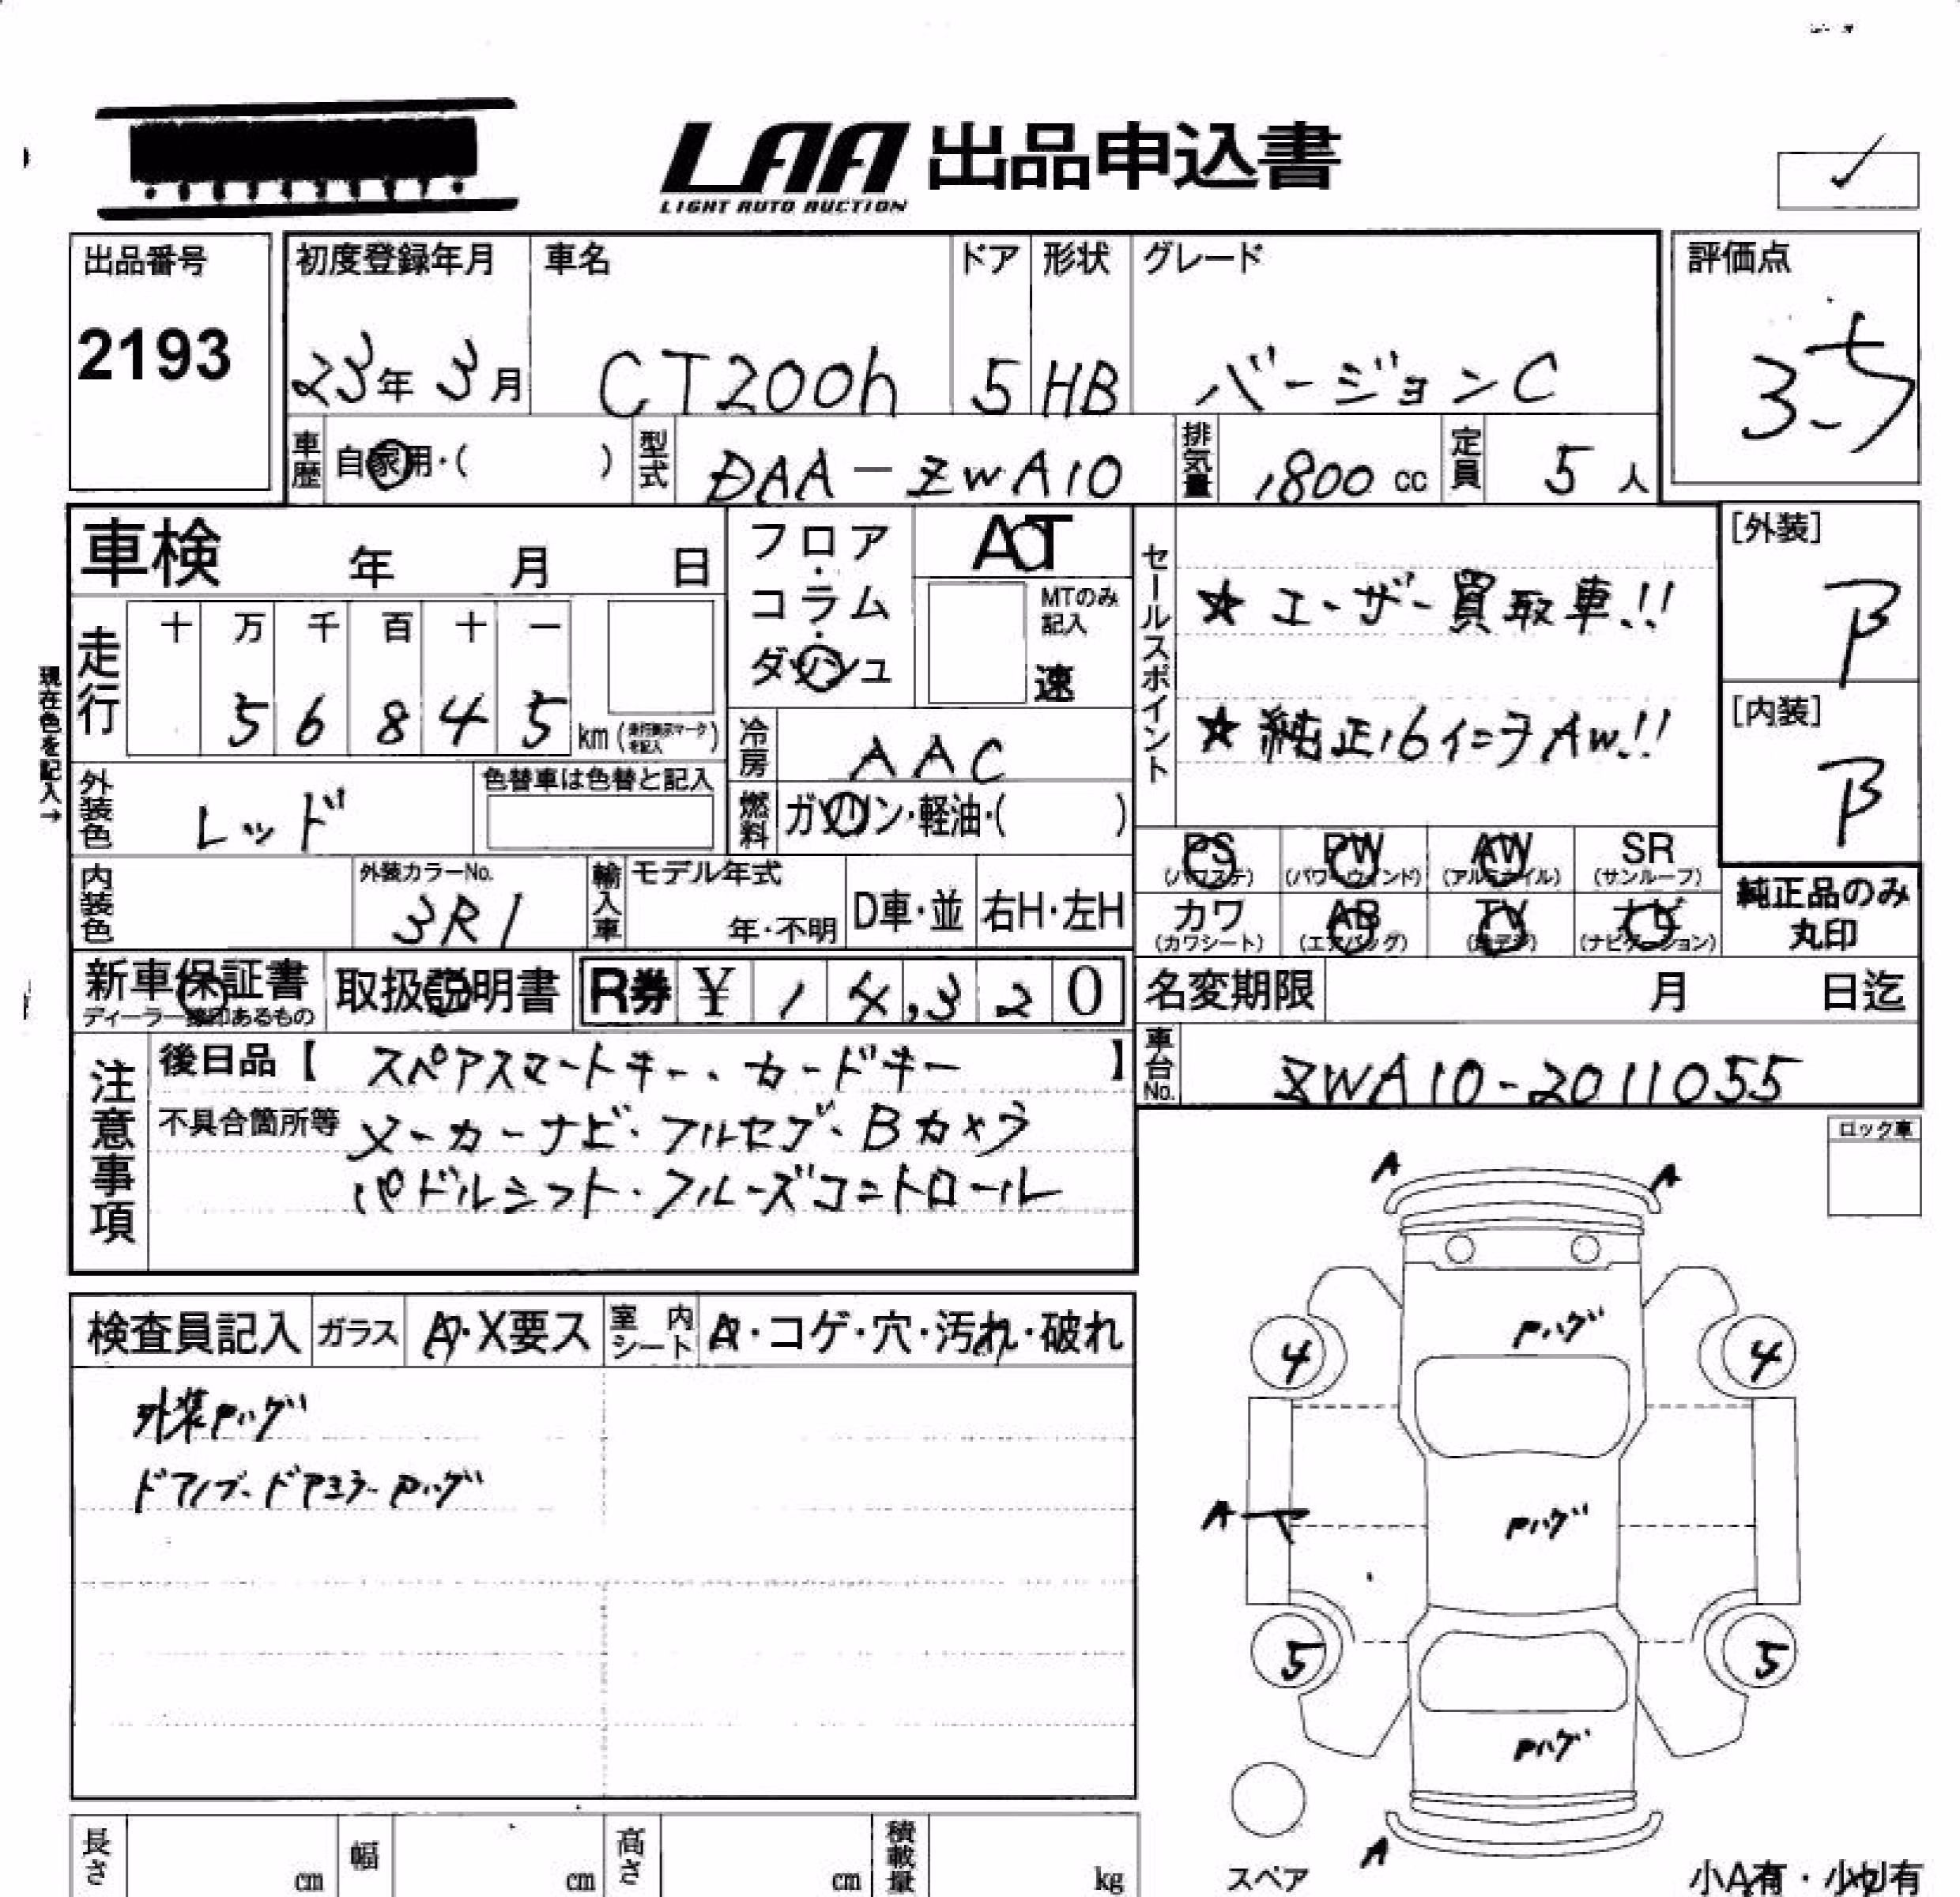 LAA 出品申込書
LIGHT AUTO AUCTION
出品番号
2193
初度登録年月
23年 3月
車名
CT200h
ドア
5
形状
HB
グレード
バージョンC
評価点
3.5
車歴 自家用・( )
型式 DAA-ZWA10
排気量 1800 cc
定員 5 人
車検 年 月 日
フロア・コラム・ダッシュ
AT
MTのみ記入
速
セールスポイント
★ ユーザー買取車!!
★ 純正16インチAW!!
[外装]
B
[内装]
B
現在色を記入→
走行
十 万 千 百 十 一
5 6 8 4 5 km
冷房 AAC
外装色 レッド
色替車は色替と記入
燃料 ガソリン・軽油・( )
PS (パワステ) PW (パワーウィンド) AW (アルミホイル) SR (サンルーフ)
カワ (カワシート) AB (エアバッグ) TV (地デジ) ナビ (ナビゲーション)
純正品のみ丸印
内装色
外装カラーNo.
3R1
輸入車
モデル年式
年・不明
D車・並
右H・左H
新車保証書
取扱説明書
R券 ¥ 14,320
名変期限 月 日迄
車台No. ZWA10-2011055
注意事項
後日品【 スペアスマートキー、カードキー 】
不具合箇所等 メーカーナビ・フルセグ・Bカメラ
パドルシフト・クルーズコントロール
ロック車
A A
Pハゲ
4 4
A
Pハゲ
5 5
Pハゲ
A
スペア
検査員記入 ガラス A・X要ス 室内シート A・コゲ・穴・汚れ・破れ
外装Pハゲ
ドアノブ・ドアミラーPハゲ
長さ cm 幅 cm 高さ cm 積載量 kg
小A有・小U有